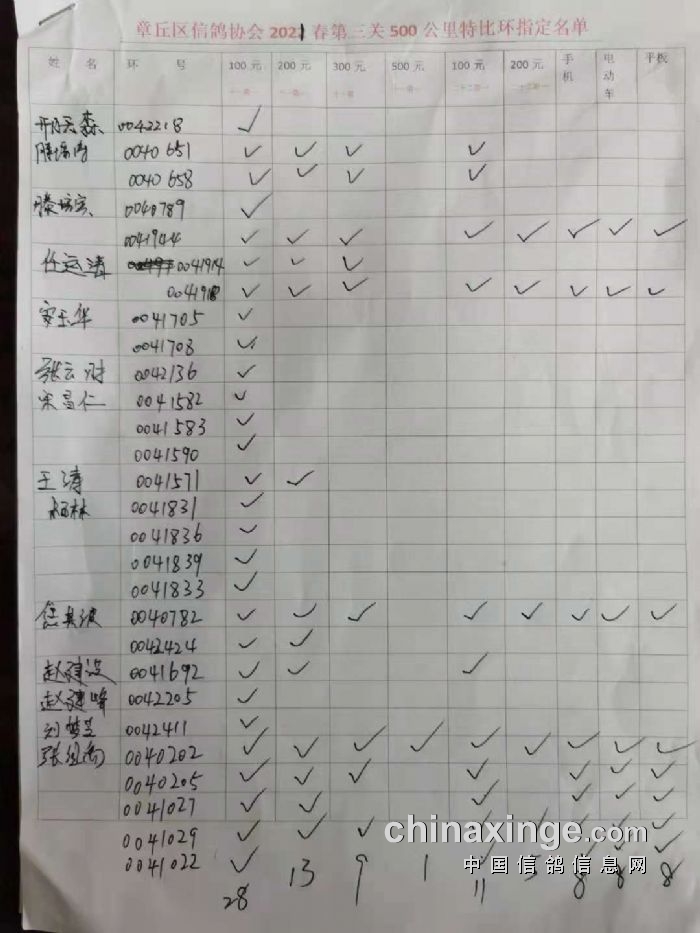 章丘区信鸽协会 2021 春第三关 500 公里特比环指定名单
姓 名 环 号 100 元 200 元 300 元 500 元 100 元 200 元 手机 电动车 平板
0042218 ✓
0040651 ✓ ✓ ✓ ✓
0040658 ✓ ✓ ✓ ✓
0040789 ✓
0041944 ✓ ✓ ✓ ✓ ✓ ✓ ✓ ✓
任运涛 0041914 ✓ ✓ ✓
0041918 ✓ ✓ ✓ ✓ ✓ ✓ ✓ ✓
0041705 ✓
0041708 ✓
张云 0042136 ✓
宋昌仁 0041582 ✓
0041583 ✓
0041590 ✓
王涛 0041571 ✓ ✓
杨林 0041831 ✓
0041836 ✓
0041839 ✓
0041833 ✓
0040782 ✓ ✓ ✓ ✓ ✓ ✓ ✓ ✓
0042424 ✓ ✓
赵建波 0041692 ✓ ✓ ✓
赵建峰 0042205 ✓
0042411 ✓
0040202 ✓ ✓ ✓ ✓ ✓ ✓ ✓ ✓ ✓
0040205 ✓ ✓ ✓ ✓ ✓ ✓ ✓
0041027 ✓ ✓ ✓ ✓ ✓ ✓
0041029 ✓ ✓ ✓
0041022 ✓
28 13 9 1 11 5 8 8 8
chinaxinge.com
中国信鸽信息网